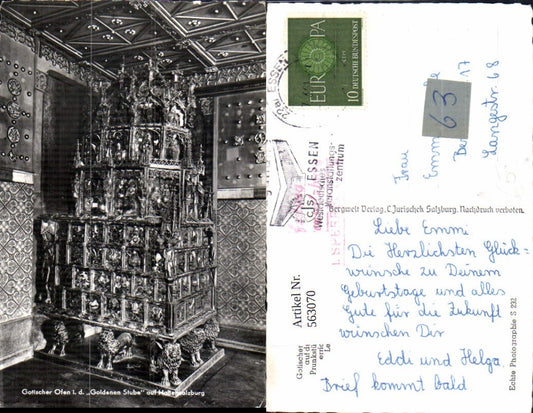 Gotischer Ofen i. d. „Goldenen Stube" auf Hohensalzburg
ESSEN
EUROPA
CEPT
10 DEUTSCHE BUNDESPOST
ESSEN
zentrum
63
17
Frau
Emm
Langestr 68
Bergwelt Verlag, C. Jurischek Salzburg. Nachdruck verboten.
Artikel Nr.
563070
Gotischer
auf di
Prunköfen
Echte Photographie S 232
Liebe Emmi
Die Herzlichsten Glück=
wünsche zu Deinem
Geburtstage und alles
Gute für die Zukunft
wünschen Dir
Eddi und Helga
Brief kommt bald